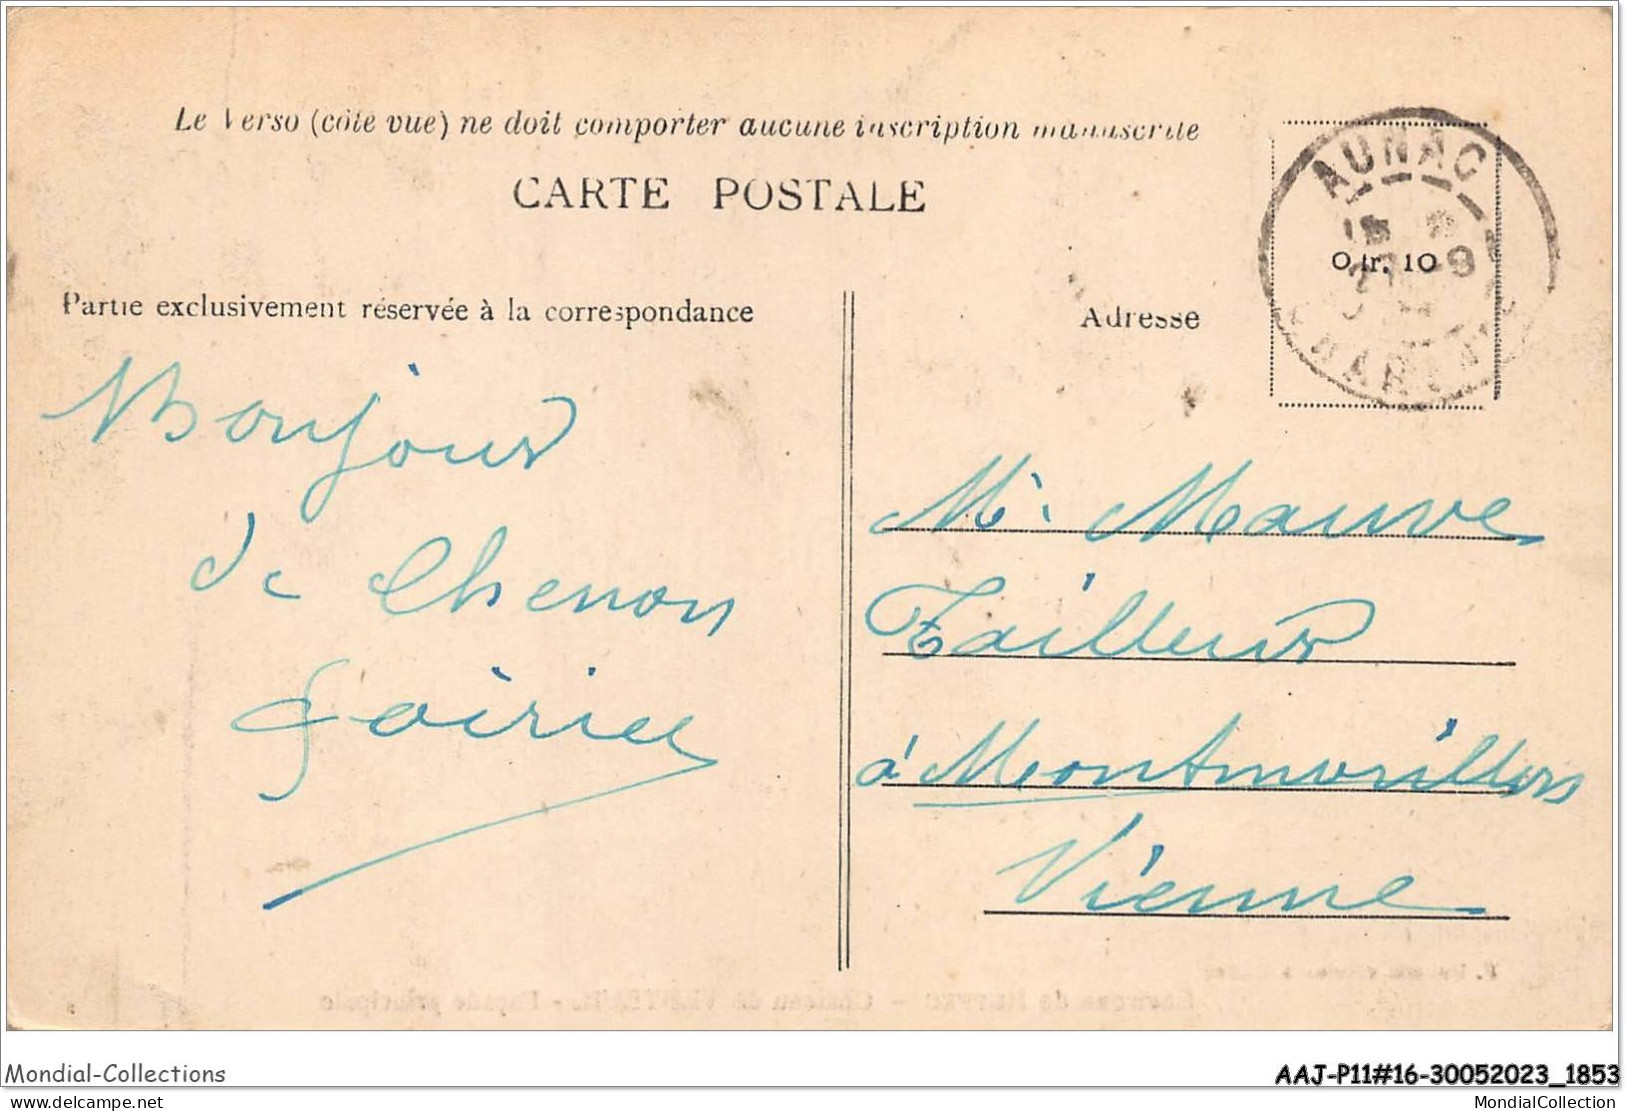 Le Verso (côté vue) ne doit comporter aucune inscription manuscrite
CARTE POSTALE
AUNAC
27 -9
0 fr. 10
Partie exclusivement réservée à la correspondance
Adresse
Bonjour
de Chenon
Mr. Mauve
Tailleur
à Montmorillon
Vienne
Environs de RUFFEC - Château de VERTEUIL - Façade principale
Mondial-Collections
AAJ-P11#16-30052023_1853
delcampe.net
MondialCollection